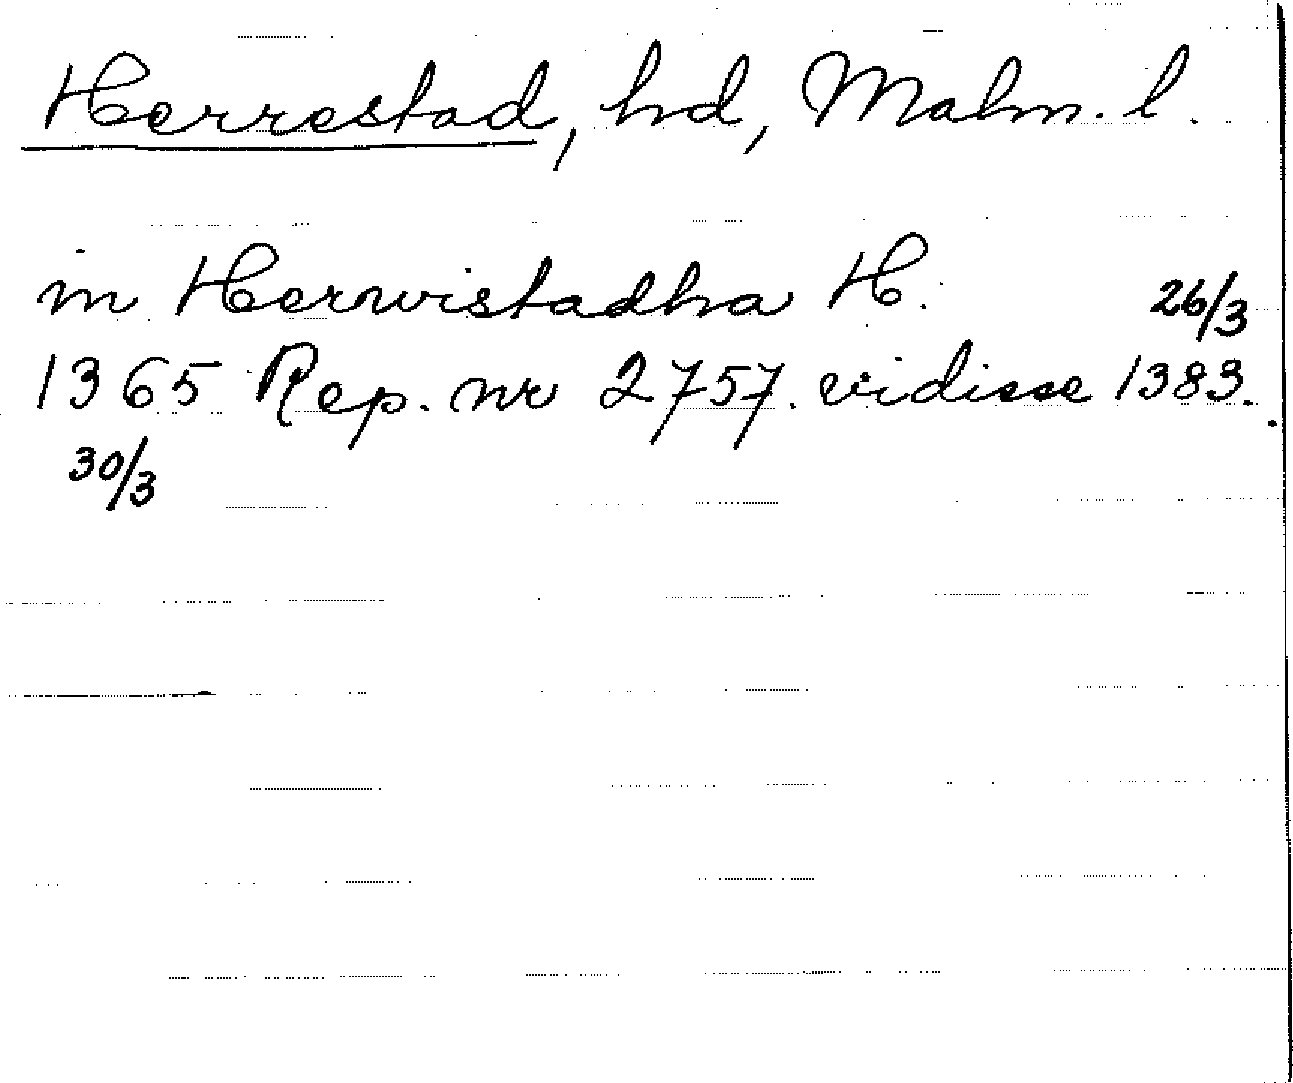 Herrestad, hd, Malm. l.
in Herwistadha H. 26/3
1365 Rep. nr 2757. vidisse 1383.
30/3